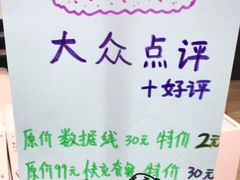 大众点评
+好评
原价数据线 30元 特价 2元
原价99元 快充套餐 特价 30元